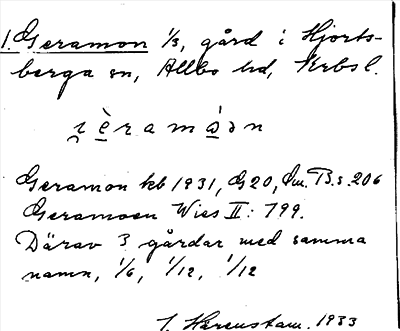 1. Geramon 1/3, gård i Hjorts-
berga sn, Allbo hd, Krbs l.
Geramon kb 1931, G20, Sm. B. s. 206
Geramoen Wies II: 799.
Därav 3 gårdar med samma
namn, 1/6, 1/12, 1/12
J. Harenstam. 1933